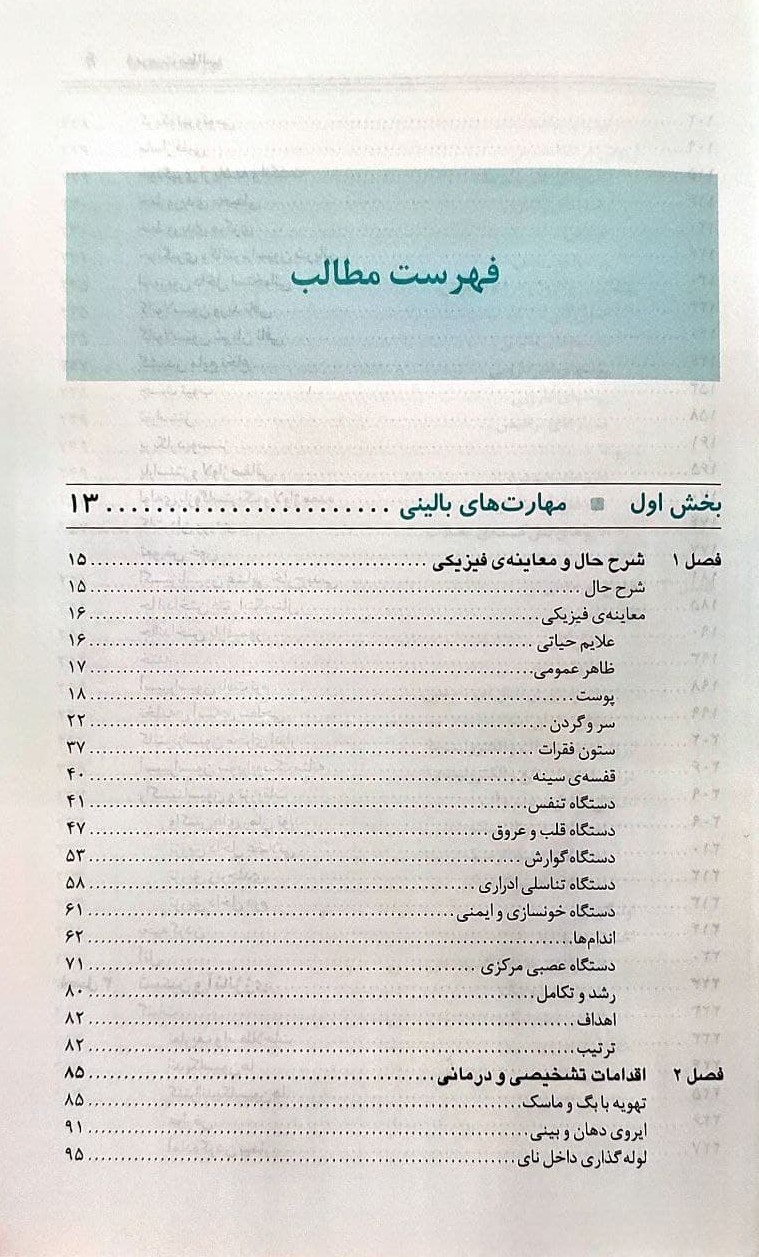 فهرست مطالب
بخش اول ■ مهارت‌های بالینی ........................ ۱۳
فصل ۱ شرح حال و معاینه‌ی فیزیکی ........................ ۱۵
شرح حال ........................ ۱۵
معاینه‌ی فیزیکی ........................ ۱۶
علایم حیاتی ........................ ۱۶
ظاهر عمومی ........................ ۱۷
پوست ........................ ۱۸
سر و گردن ........................ ۲۲
ستون فقرات ........................ ۳۷
قفسه‌ی سینه ........................ ۴۰
دستگاه تنفس ........................ ۴۱
دستگاه قلب و عروق ........................ ۴۷
دستگاه گوارش ........................ ۵۳
دستگاه تناسلی ادراری ........................ ۵۸
دستگاه خونسازی و ایمنی ........................ ۶۱
اندام‌ها ........................ ۶۲
دستگاه عصبی مرکزی ........................ ۷۱
رشد و تکامل ........................ ۸۰
اهداف ........................ ۸۲
ترتیب ........................ ۸۲
فصل ۲ اقدامات تشخیصی و درمانی ........................ ۸۵
تهویه با بگ و ماسک ........................ ۸۵
ایروی دهان و بینی ........................ ۹۱
لوله‌گذاری داخل نای ........................ ۹۵